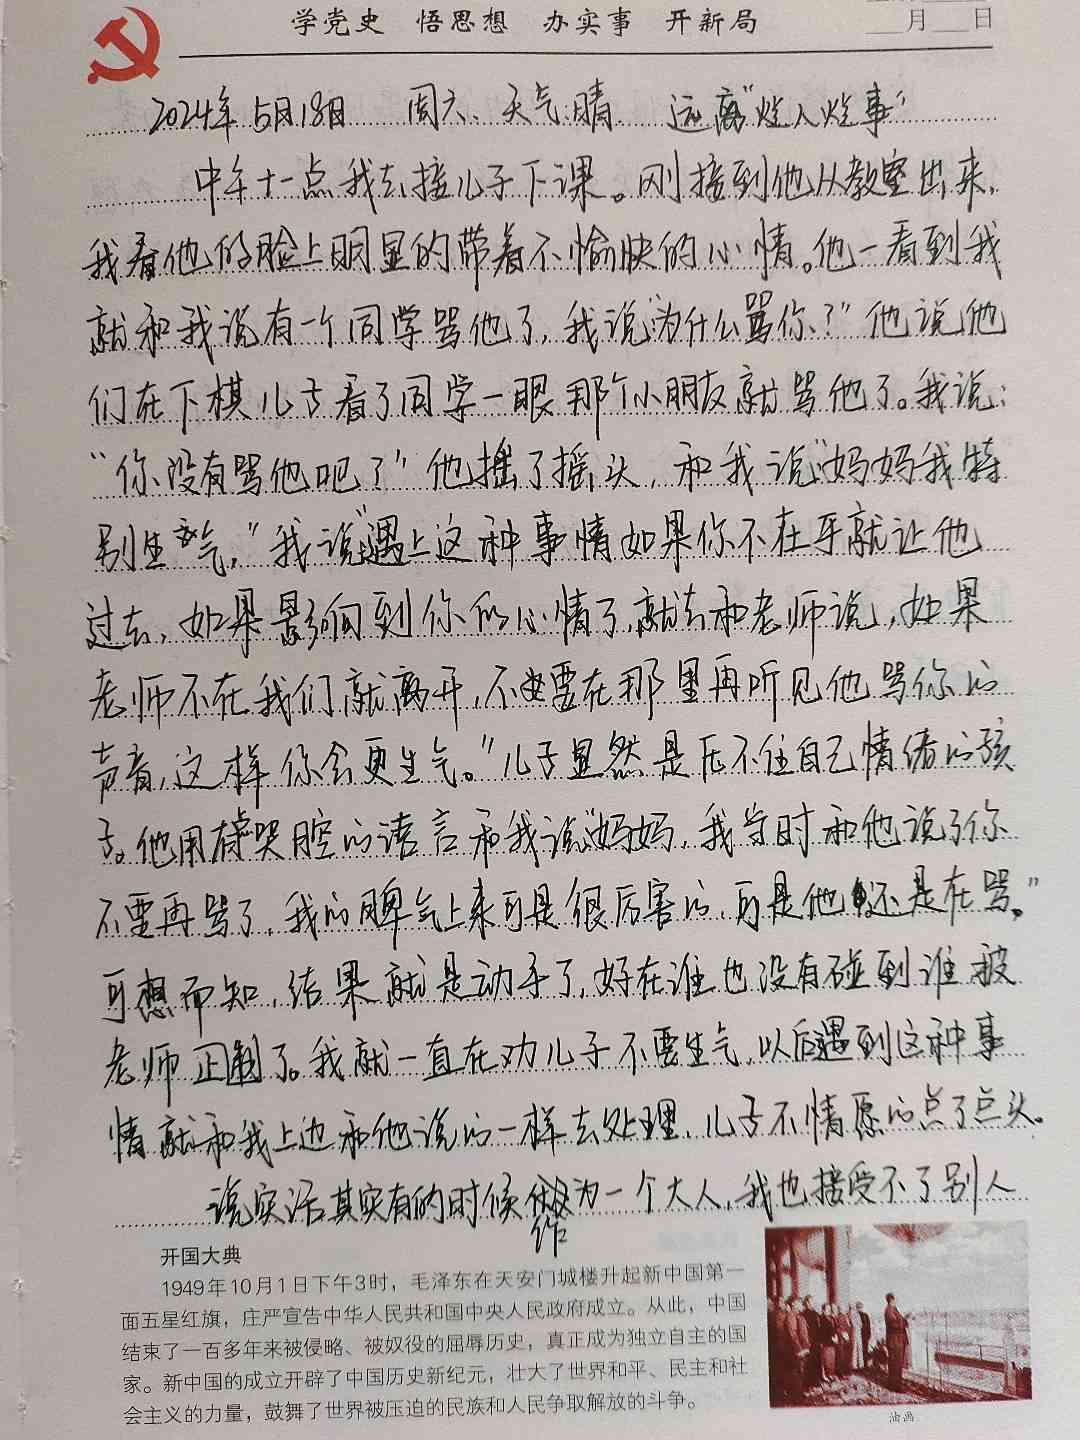 学党史 悟思想 办实事 开新局
月 日
2024年5月18日 周六、天气:晴 远离“烂人烂事”
中午十一点我去接儿子下课。刚接到他从教室出来,
我看他的脸上明显的带着不愉快的心情。他一看到我
就和我说有一个同学骂他了,我说“为什么骂你?”他说他
们在下棋儿子看了同学一眼那个小朋友就骂他了。我说:
“你没有骂他吧?”他摇了摇头,和我说“妈妈我特
别生气,”我说“遇上这种事情如果你不在乎就让他
过去,如果影响到你的心情了,就去和老师说,如果
老师不在我们就离开,不要在那里再听见他骂你的
声音,这样你会更生气。”儿子显然是压不住自己情绪的孩
子。他用带哭腔的语言和我说“妈妈,我当时和他说了你
不要再骂了,我的脾气上来可是很厉害的,可是他还是在骂。”
可想而知,结果就是动手了,好在谁也没有碰到谁被
老师制了。我就一直在劝儿子不要生气,以后遇到这种事
情就和我上边和他说的一样去处理,儿子不情愿的点了点头。
说实话其实有的时候作为一个大人,我也接受不了别人
开国大典
1949年10月1日下午3时,毛泽东在天安门城楼升起新中国第一
面五星红旗,庄严宣告中华人民共和国中央人民政府成立。从此,中国
结束了一百多年来被侵略、被奴役的屈辱历史,真正成为独立自主的国
家。新中国的成立开辟了中国历史新纪元,壮大了世界和平、民主和社
会主义的力量,鼓舞了世界被压迫的民族和人民争取解放的斗争。
油画